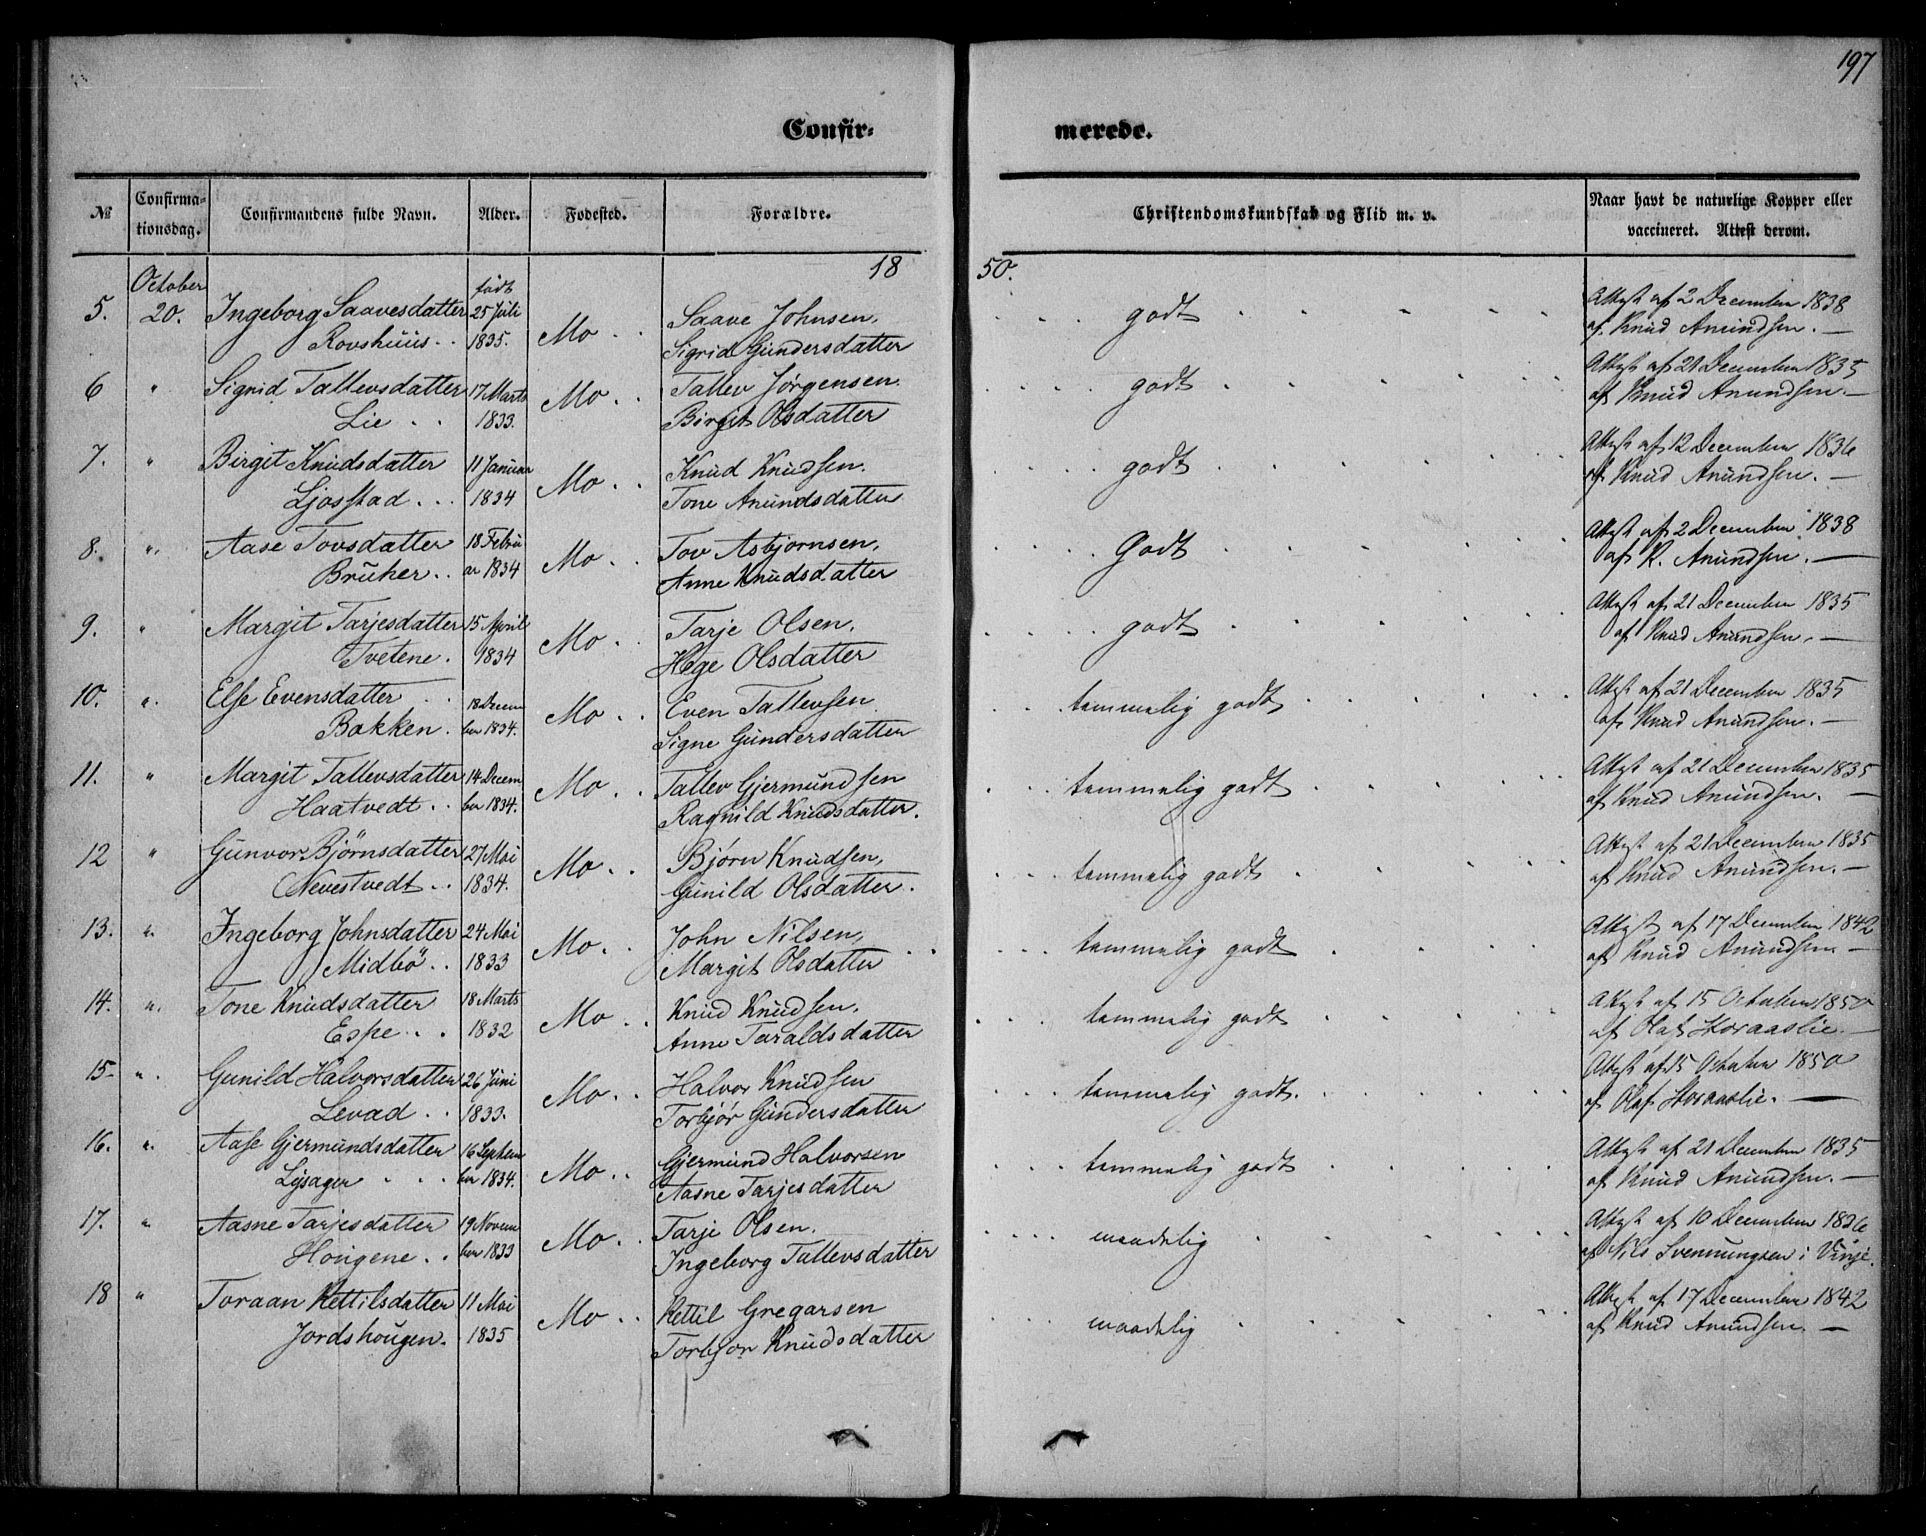 197
Confir= merede.
№ Confirma= Confirmandens fulde Navn. Alder. Fødested. Forældre. Christendomskundskab og Flid m. v. Naar havt de naturlige Kopper eller
tionsdag. vaccineret. Attest derom.
1850.
October født
5. 20. Ingeborg Saavesdatter 25 Juli Mo Saave Johnsen, godt Attest af 2 December 1838
Rovshuus 1835. Sigrid Gundersdatter af Knud Anundsen.
6 " Sigrid Tallevsdatter 17 Marts Mo Tallev Jørgensen godt Attest af 21 December 1835
Lie 1833. Birgit Olsdatter af Knud Anundsen.
7. " Birgit Knudsdatter 11 Januar Mo Knud Knudsen. godt Attest af 12 December 1836
Ljosstad 1834 Tone Anundsdatter af Knud Anundsen.
8. " Aase Tovsdatter 18 Febru Mo Tov Asbjørnsen, Godt Attest af 2 December 1838
ar 1834 Anne Knudsdatter af K. Anundsen.
9. " Margit Tarjesdatter 15 April Mo Tarje Olsen. godt Attest af 21 December 1835
Tvetene. 1834 Hege Olsdatter af Knud Anundsen.
10. " Else Evensdatter 18 Decem Mo Even Tallevsen temmelig godt Attest af 21 December 1835
Bakken. ber 1834. Signe Gundersdatter af Knud Anundsen.
11. " Margit Tallevsdatter 14 Decem Mo Tallev Gjermundsen temmelig godt Attest af 21 December 1835
Haatvedt ber 1834. Ragnild Knudsdatter. af Knud Anundsen.
12 " Gunvor Bjørnsdatter 27 Mai Mo Bjørn Knudsen, temmelig godt Attest af 21 December 1835
Nevestvedt 1834. Gunild Olsdatter. af Knud Anundsen.
13. " Ingeborg Johnsdatter 24 Mai Mo. John Nilsen, temmelig godt Attest af 17 December 1842
Midbö 1833 Margit Olsdatter af Knud Anundsen
14. " Tone Knudsdatter 18 Marts Mo Knud Knudsen. temmelig godt Attest af 15 October 1850
Espe 1832 Anne Taraldsdatter af Olaf Storaaslie.
15 " Gunild Halvorsdatter 26 Juni Mo Halvor Knudsen temmelig godt. Attest af 15 October 1850
Levad 1833. Torbjør Gundersdatter af Olaf Storaaslie.
16. " Aase Gjermundsdatter 16 Septem Mo Gjermund Halvorsen temmelig godt Attest af 21 December 1835
ber 1834. Aasne Tarjesdatter af Knud Anundsen.
17. " Aasne Tarjesdatter 19 Novem Mo Tarje Olsen. maadelig Attest af 10 December 1836
Hougene ber 1833 Ingeborg Tallevsdatter af Nils Svenningsen i Vinje.
18 " Toraan Kettilsdatter 11 Mai Mo Kettil Gregarsen maadelig Attest af 17 December 1842
Jordshougen. 1835 Torbjør Knudsdatter af Knud Anundsen